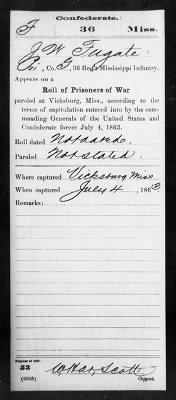 Confederate.
F 36 Miss.
J. W. Fugate
Pri, Co. G, 36 Reg't Mississippi Infantry.
Appears on a
Roll of Prisoners of War
paroled at Vicksburg, Miss., according to the
terms of capitulation entered into by the com-
manding Generals of the United States and
Confederate forces July 4, 1863.
Roll dated Not dated.
Paroled Not stated.
Where captured Vicksburg Miss
When captured July 4, 1863
Remarks:
Number of roll:
53
Scott
Copyist.